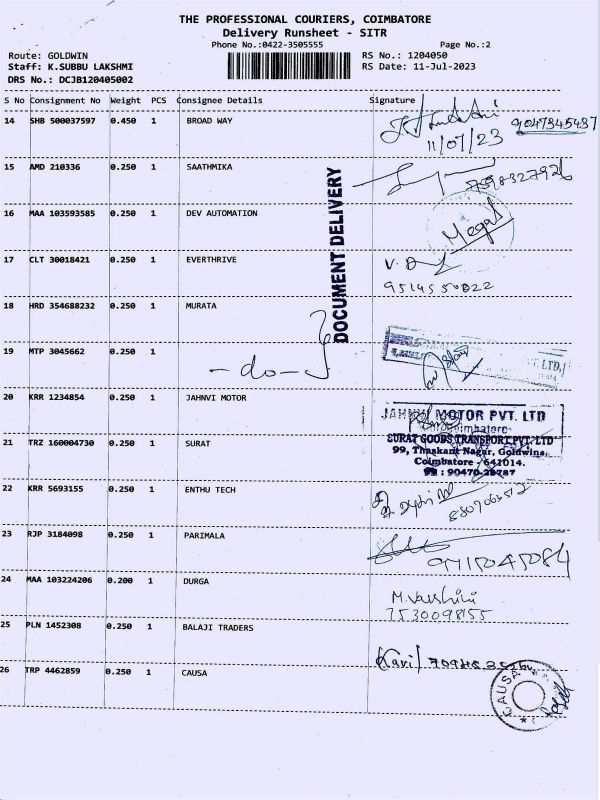 THE PROFESSIONAL COURIERS, COIMBATORE
Delivery Runsheet - SITR
Phone No.:0422-3505555 Page No.:2
Route: GOLDWIN RS No.: 1204050
Staff: K.SUBBU LAKSHMI RS Date: 11-Jul-2023
DRS No.: DCJB120405002
S No Consignment No Weight PCS Consignee Details Signature
14 SHB 500037597 0.450 1 BROAD WAY
11/07/23
15 AMD 210336 0.250 1 SAATHMIKA
DOCUMENT DELIVERY
16 MAA 103593585 0.250 1 DEV AUTOMATION
17 CLT 30018421 0.250 1 EVERTHRIVE
18 HRD 354688232 0.250 1 MURATA
19 MTP 3045662 0.250 1 -do-
LTD.
20 KRR 1234854 0.250 1 JAHNVI MOTOR
JAHNVI MOTOR PVT. LTD
Coimbatore
21 TRZ 160004730 0.250 1 SURAT
SURAT GOODS TRANSPORT PVT. LTD
99, Thaskant Nagar, Goldwins,
Coimbatore - 641014.
22 KRR 5693155 0.250 1 ENTHU TECH
23 RJP 3184098 0.250 1 PARIMALA
24 MAA 103224206 0.200 1 DURGA
M. Varshini
7530098155
25 PLN 1452308 0.250 1 BALAJI TRADERS
26 TRP 4462859 0.250 1 CAUSA
CAUSA